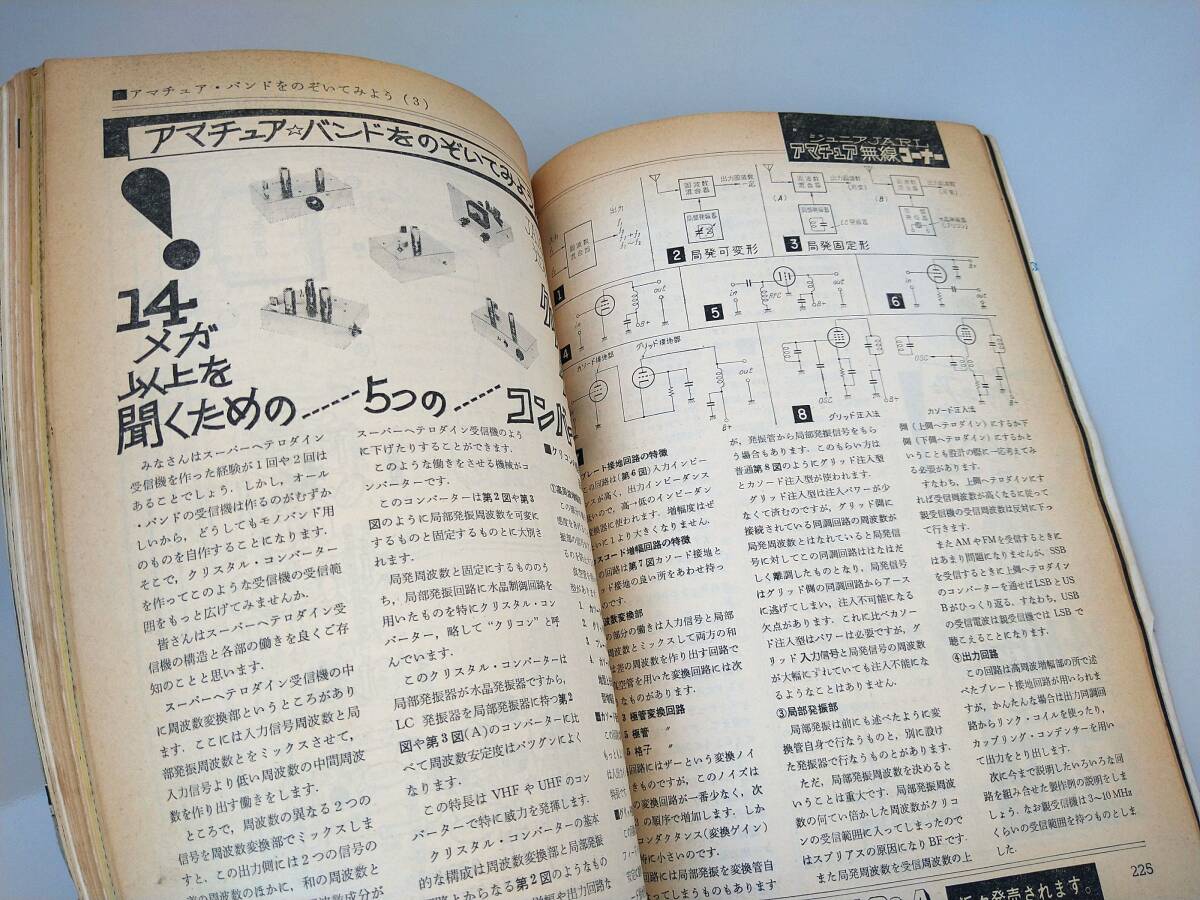 ■アマチュア・バンドをのぞいてみよう(3)
アマチュア☆バンドをのぞいてみよ
!
14
メガ
以上を
聞くための……5つの……コンバ
みなさんはスーパーヘテロダイン
受信機を作った経験が1回や2回は
あることでしょう.しかし,オール
・バンドの受信機は作るのがむずか
しいから,どうしてもモノバンド用
のものを自作することになります.
そこで,クリスタル・コンバーター
を作ってこのような受信機の受信範
囲をもっと広げてみませんか.
皆さんはスーパーヘテロダイン受
信機の構造と各部の働きを良くご存
知のことと思います.
スーパーヘテロダイン受信機の中
に周波数変換部というところがあり
ます.ここには入力信号周波数と局
部発振周波数とをミックスさせて,
入力信号より低い周波数の中間周波
数を作り出す働きをします.
ところで,周波数の異なる2つの
信号を周波数変換部でミックスしま
すと,この出力側には2つの信号の
差の周波数のほかに,和の周波数と
スーパーヘテロダイン受信機のよう
に下げたりすることができます.
このような働きをさせる機械がコ
ンバーターです.
このコンバーターは第2図や第3
図のように局部発振周波数を可変に
するものと固定するものとに大別さ
れます.
局発周波数と固定にするもののう
ち,局部発振回路に水晶制御回路を
用いたものを特にクリスタル・コン
バーター,略して“クリコン”と呼
んでいます.
このクリスタル・コンバーターは
局部発振器が水晶発振器ですから,
LC 発振器を局部発振器に持つ第2
図や第3図(A)のコンバーターに比
べて周波数安定度はバツグンによく
なります.
この特長は VHF や UHF のコン
バーターで特に威力を発揮します.
クリスタル・コンバーターの基本
的な構成は周波数変換部と局部発振
からなる第2図のようなもの
ジュニアJARL
アマチュア無線コーナー
出力
周波数
混合部
1
周波数
混合器
出力周波数
一応
局部発振器
2 局発可変形
(A)
周波数
混合器
出力周波数
(可変)
局部発振器
LC発振器
3 局発固定形
(B)
周波数
混合器
出力周波数
(可変)
局部発振器
in
out
B+
4
in
RFC
out
B+
5
in
out
B+
6
カソード接地部
グリッド接地部
out
B+
OSC
B+
8 グリッド注入法
OSC
B+
カソード注入法
プレート接地回路の特徴
の回路は(第6図)入力インピー
ンスが高く,出力インピーダンス
低いので,高→低のインピーダン
変換器に使われます.増幅度はぜ
いに1より大きくなりません.
スコード増幅回路の特徴
の回路は第7図カソード接地と
ッド接地の良い所をあわせ持っ
のです.
波数変換部
の部分の働きは入力信号と局部
周波数とミックスして両方の和
は差の周波数を作り出す所で
真空管を用いた変換回路には次
なものがあります.
3 極管変換回路
5 極管 〃
5 格子 〃
回路にはザーという変換ノイ
きものですが,このノイズは
の変換回路が一番少なく,次
の順序で増加します.しか
コンダクタンス(変換ゲイン)
特に小さいのです.
回路には局部発振を変換管自
てしまうものもあります
が,発振管から局部発振信号をもら
う場合もあります.このもらい方は
普通第8図のようにグリッド注入型
とカソード注入型が使われます.
グリッド注入型は注入パワーが少
なくて済むのですが,グリッド側に
接続されている同調回路の周波数が
局発周波数とはなれていると局発信
号に対してこの同調回路ははなはだ
しく離調したものとなり,局発信号
はグリッド側の同調回路からアース
に逃げてしまい,注入不可能になる
欠点があります.これに比べカソー
ド注入型はパワーは必要ですが,グ
リッド入力信号と局発信号の周波数
が大幅にずれていても注入不能にな
るようなことはありません.
③局部発振部
局部発振は前にも述べたように変
換管自身で行なうものと,別に設け
た発振器で行なうものとあります.
ただ,局部発振周波数を決めると
いうことは重大です.局部発振周波
数の何てい倍かした周波数がクリコ
ンの受信範囲に入ってしまったので
はスプリアスの原因になり BF です.
また局発周波数を受信周波数の上
側(上側ヘテロダイン)にするか下
側(下側ヘテロダイン)にするかと
いうことも設計の際に一応考えてみ
る必要があります.
すなわち,上側ヘテロダインにす
れば受信周波数が高くなるに従って
親受信機の受信周波数は反対に下っ
て行きます.
またAMやFMを受信するときに
はあまり問題になりませんが,SSB
を受信するときに上側ヘテロダイン
のコンバーターを通せばLSBとUS
Bがひっくり返る.すなわち,USB
の受信電波は親受信機では LSB で
聴こえることになります.
④出力回路
この回路は高周波増幅部の所で述
べたプレート接地回路が用いられま
すが,かんたんな場合は出力同調回
路からリンク・コイルを使ったり,
カップリング・コンデンサーを用い
て出力をとり出します.
次に今まで説明したいろいろな回
路を組み合せた製作例の説明をしま
しょう.なお親受信機は3〜10 MHz
くらいの受信範囲を持つものとしま
した.
225
発売されます。